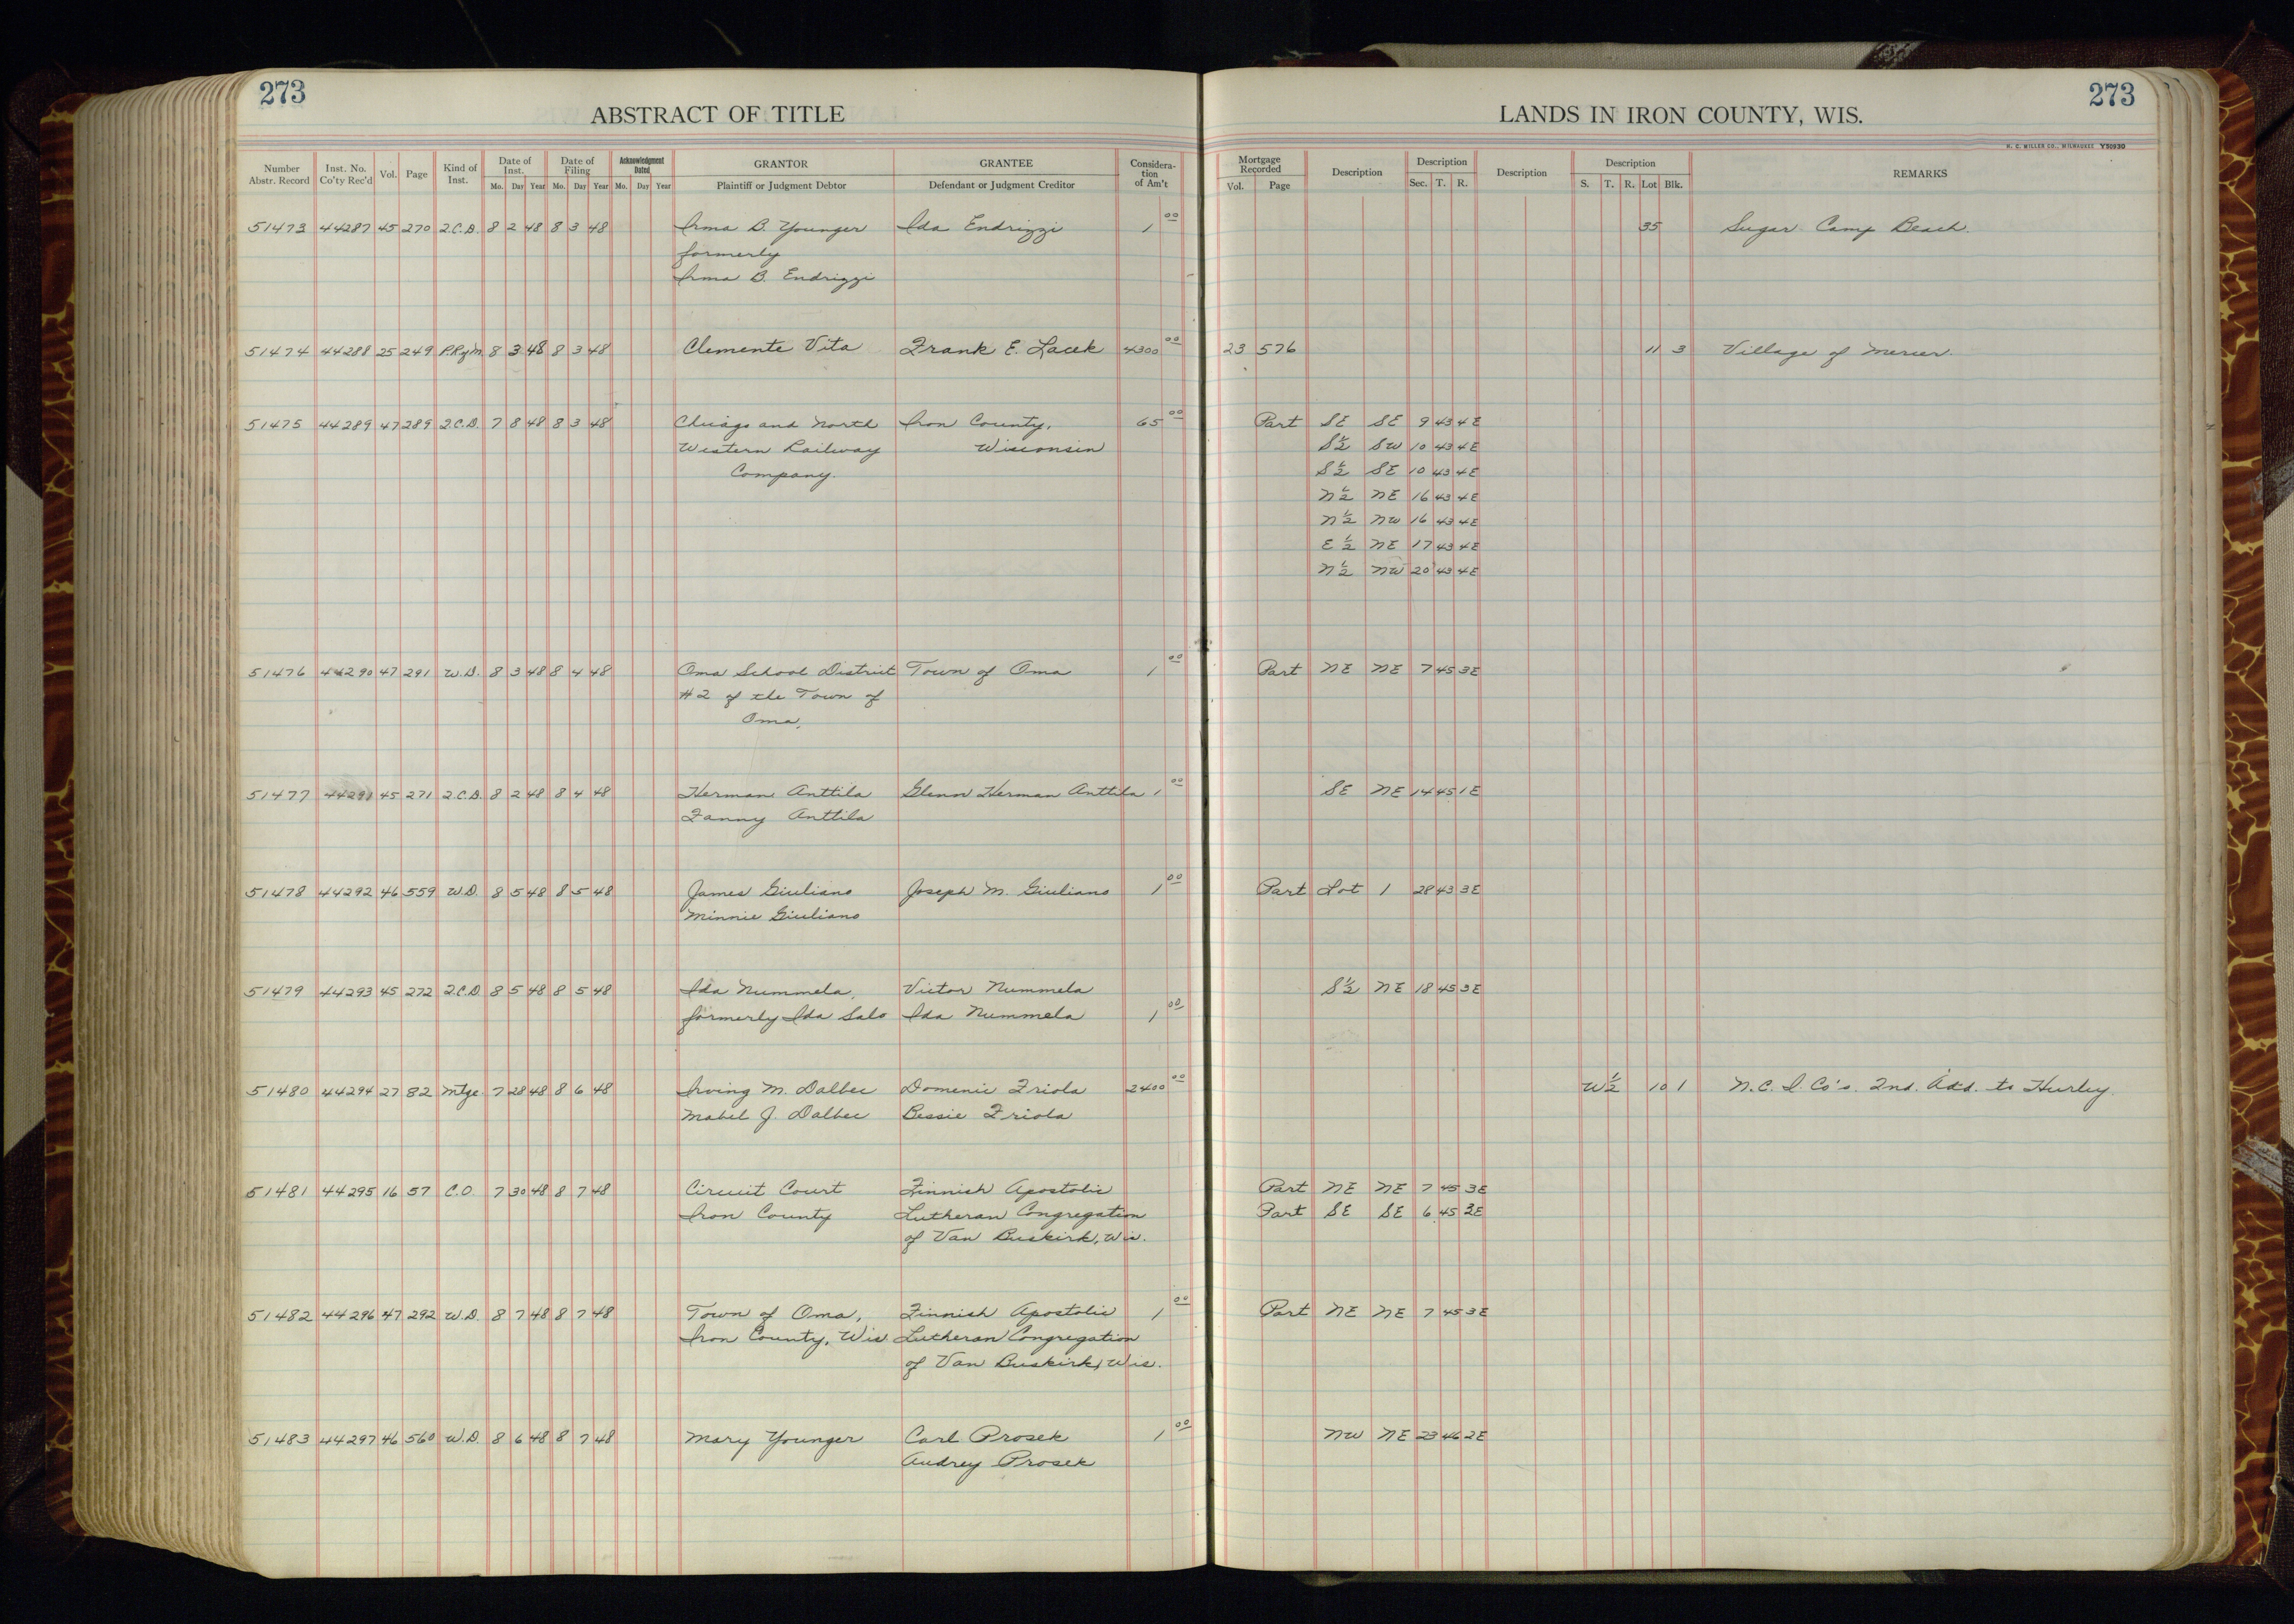 273
ABSTRACT OF TITLE
LANDS IN IRON COUNTY, WIS.
273
H. C. MILLER CO., MILWAUKEE Y50930
Number Abstr. Record | Inst. No. Co'ty Rec'd | Vol. | Page | Kind of Inst. | Date of Inst. Mo. Day Year | Date of Filing Mo. Day Year | Acknowledgment Dated Mo. Day Year | GRANTOR Plaintiff or Judgment Debtor | GRANTEE Defendant or Judgment Creditor | Considera-tion of Am't | Mortgage Recorded Vol. Page | Description | Description Sec. T. R. | Description | Description S. T. R. Lot Blk. | REMARKS
51473 44287 45 270 Q.C.D. 8 2 48 8 3 48 Irma B. Younger Ida Endrizzi 1 00 35 Sugar Camp Beach.
formerly
Irma B. Endrizzi
51474 44288 25 249 8 3 48 8 3 48 Clemente Vita Frank E. Lacek 4300 00 23 576 11 3 Village of Mercer.
51475 44289 47 289 Q.C.D. 7 8 48 8 3 48 Chicago and North Iron County, 65 00 Part SE SE 9 43 4E
Western Railway Wisconsin S½ SW 10 43 4E
Company. S½ SE 10 43 4E
N½ NE 16 43 4E
N½ NW 16 43 4E
E½ NE 17 43 4E
N½ NW 20 43 4E
51476 44290 47 291 W.D. 8 3 48 8 4 48 Oma School District Town of Oma 1 00 Part NE NE 7 45 3E
#2 of the Town of
Oma.
51477 44291 45 271 Q.C.D. 8 2 48 8 4 48 Herman Anttila Glenn Herman Anttila 1 00 SE NE 14 45 1E
Fanny Anttila
51478 44292 46 559 W.D. 8 5 48 8 5 48 James Giuliano Joseph M. Giuliano 1 00 Part Lot 1 28 43 3E
Minnie Giuliano
51479 44293 45 272 Q.C.D. 8 5 48 8 5 48 Ida Nummela, Victor Nummela S½ NE 18 45 3E
formerly Ida Salo Ida Nummela 1 00
51480 44294 27 82 Mtge. 7 28 48 8 6 48 Irving M. Dalbec Domenic Friola 2400 00 W½ 10 1 N.C.I. Co's. 2nd. Add. to Hurley.
Mabel J. Dalbec Bessie Friola
51481 44295 16 57 C.O. 7 30 48 8 7 48 Circuit Court Finnish Apostolic Part NE NE 7 45 3E
Iron County Lutheran Congregation Part SE SE 6 45 3E
of Van Buskirk, Wis.
51482 44296 47 292 W.D. 8 7 48 8 7 48 Town of Oma, Finnish Apostolic 1 00 Part NE NE 7 45 3E
Iron County, Wis Lutheran Congregation
of Van Buskirk, Wis.
51483 44297 46 560 W.D. 8 6 48 8 7 48 Mary Younger Carl Prosek 1 00 NW NE 23 46 2E
Audrey Prosek